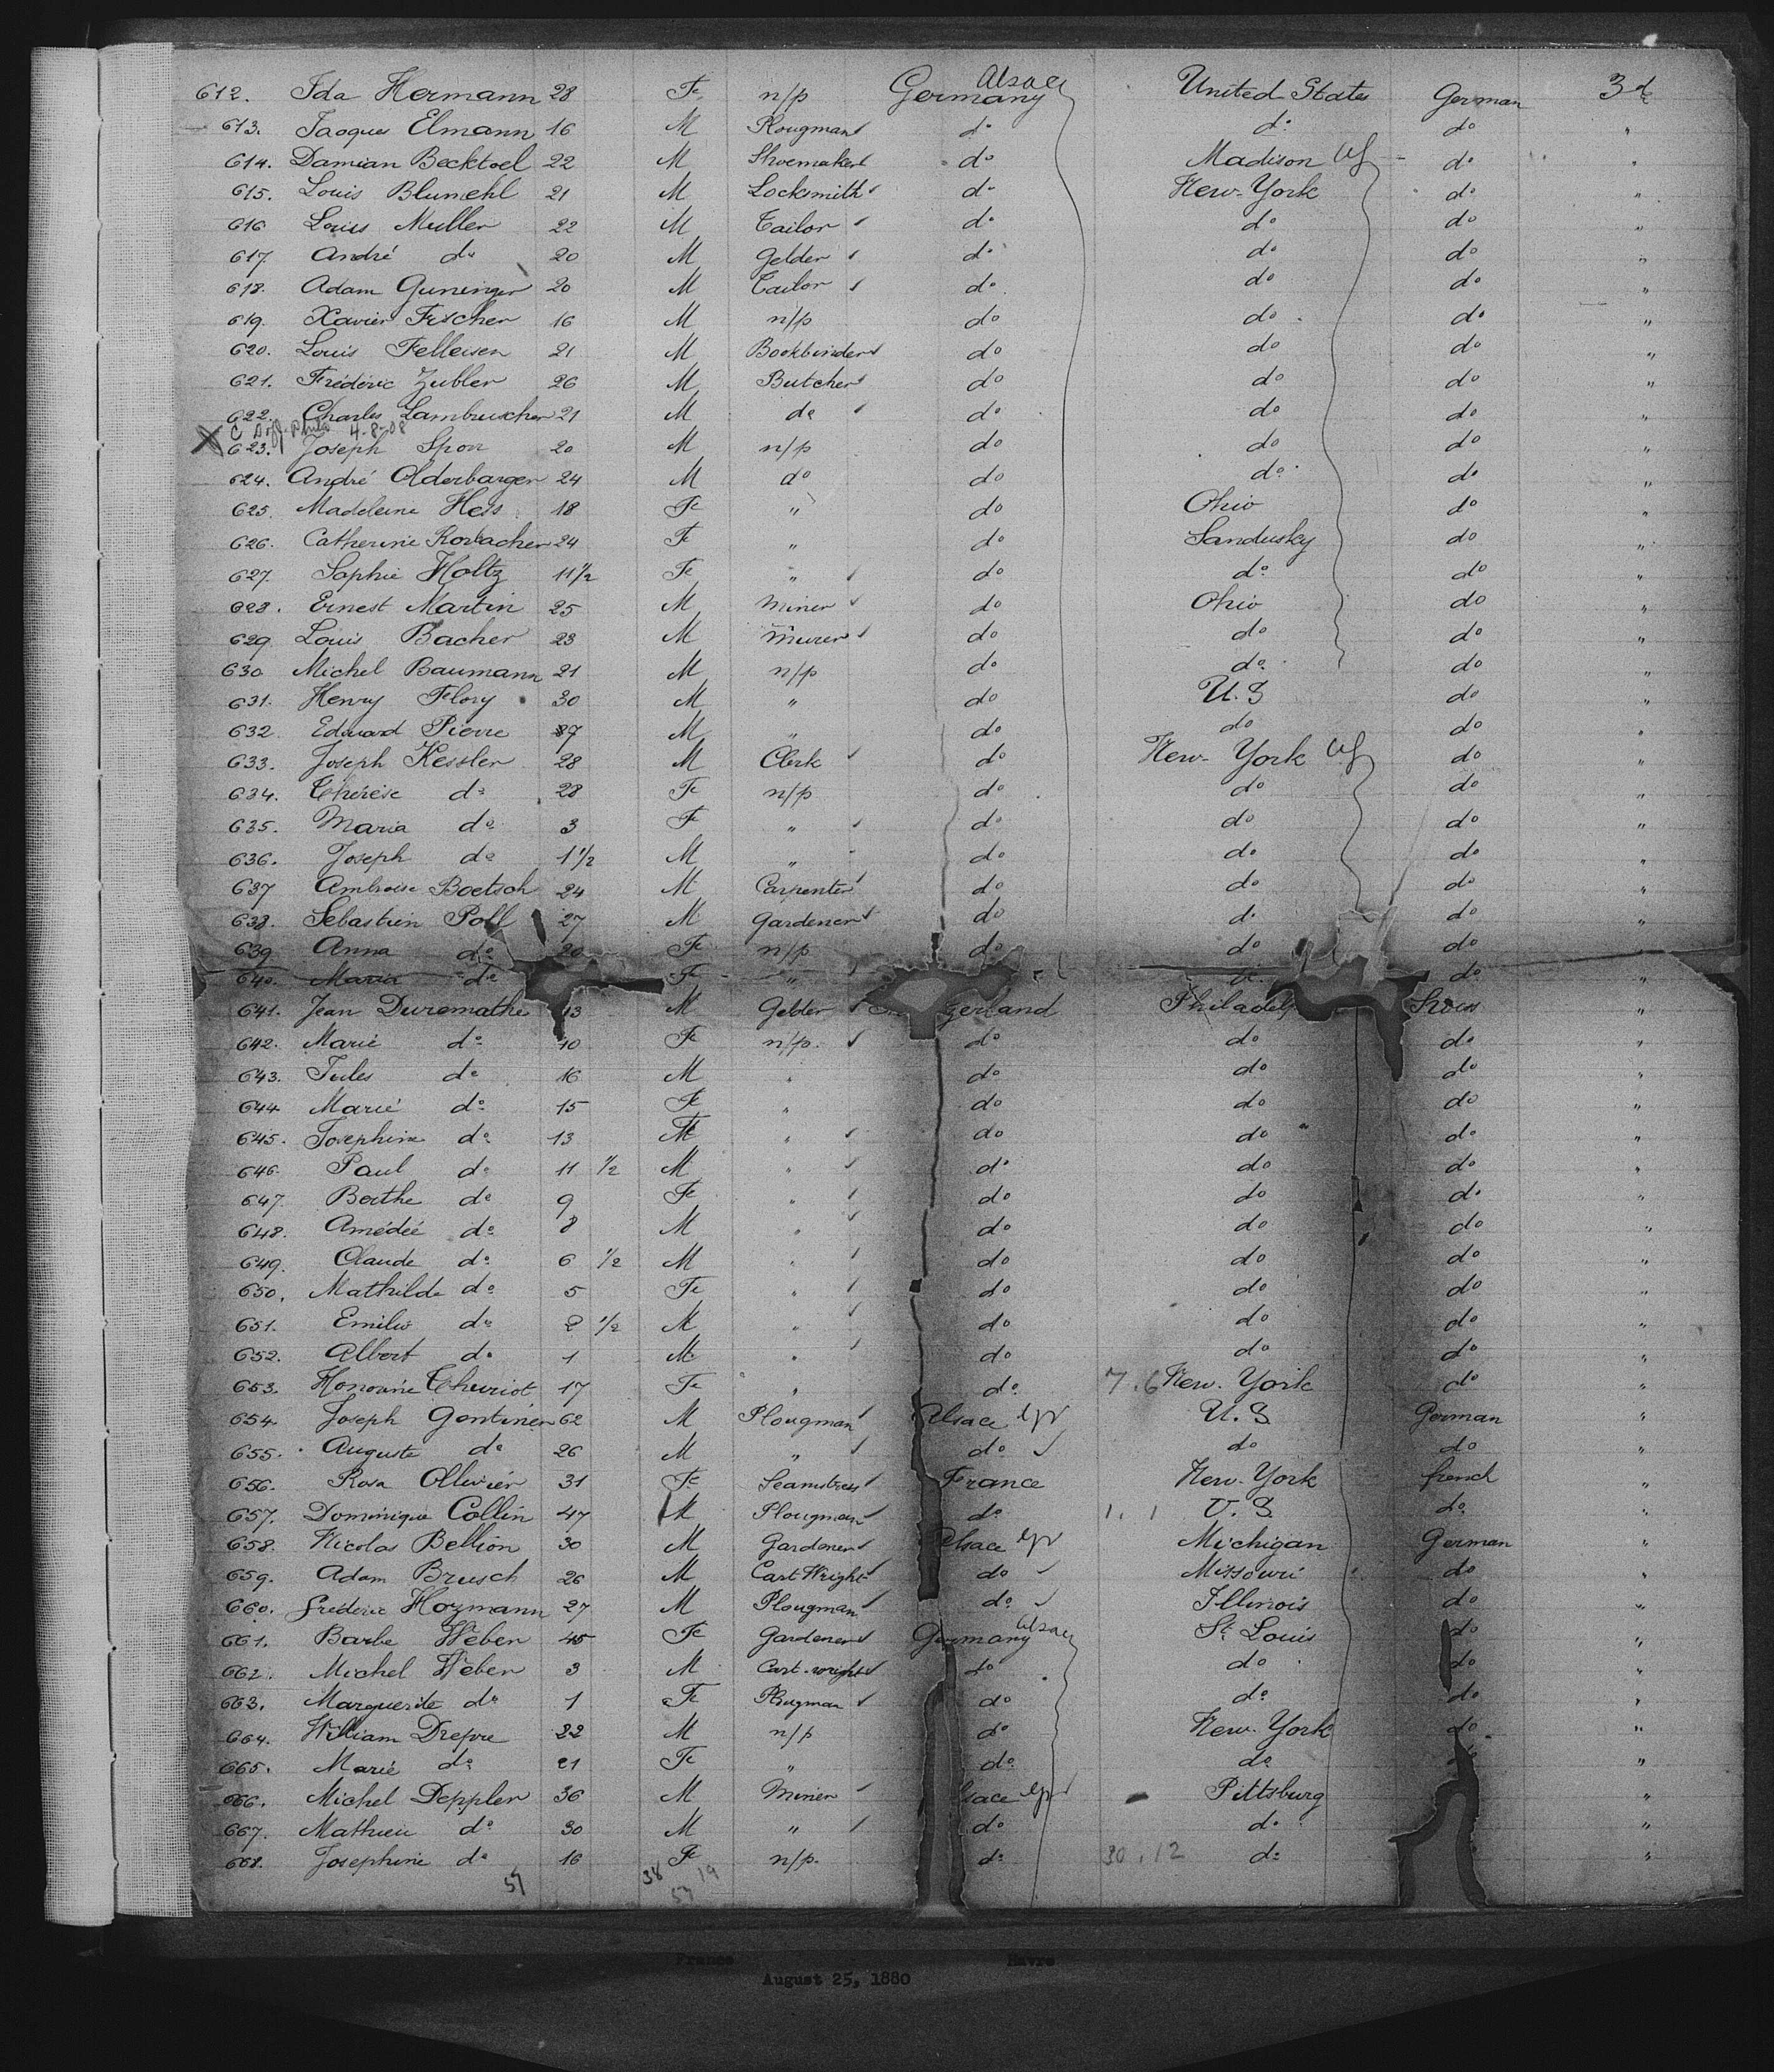 612. Ida Hermann 28 Fe n/p Germany Alsace United States German 3d
613. Jacques Elmann 16 M Plougman do do do "
614. Damian Becktoel 22 M Shoemaker do Madison do "
615. Louis Blumehl 21 M Locksmith do New-York do "
616 Louis Muller 22 M Tailor do do do "
617. André do 20 M Gelder do do do "
618. Adam Guninger 20 M Tailor do do do "
619. Xavier Fischer 16 M n/p do do do "
620. Louis Felleisen 21 M Bookbinder do do do "
621. Frédéric Zubler 26 M Butcher do do do "
622. Charles Lambruscher 21 M do do do do "
X C 4-8-08
623. Joseph Spon 20 M n/p do do do "
624. André Olderbarger 24 M do do do do "
625. Madeleine Hess 18 Fe " do Ohio do "
626. Catherine 24 Fe " do Sandusky do "
627. Sophie Holtz 11 1/2 Fe " do do do "
628. Ernest Martin 25 M Miner do Ohio do "
629. Louis Bacher 23 M do do do "
630 Michel Baumann 21 M n/p do do do "
631. Henry Flory 30 M " do U.S do "
632. Eduard Pierre 37 M " do do do "
633. Joseph Kessler 28 M Clerk do New-York do "
634. Thérèse do 28 Fe n/p do do do "
635. Maria do 3 Fe " do do do "
636. Joseph do 1 1/2 M " do do do "
637 Ambroise Boetsch 24 M Carpenter do do do "
638. Sebastien Poll 27 M Gardener do do do "
639 Anna do 20 Fe n/p do do do "
640. Maria do Fe " do "
641. Jean Duremathe M Gelder zerland Philadelp "
642. Marie do 10 Fe n/p. do do do "
643. Jules do 16 M " do do do "
644 Marie do 15 Fe " do do do "
645. Josephine do 13 Fe " do do do "
646. Paul do 11 1/2 M " do do do "
647. Berthe do 9 Fe " do do do "
648. Amédée do 8 M " do do do "
649. Claude do 6 1/2 M " do do do "
650. Mathilde do 5 Fe " do do do "
651. Emile do 2 1/2 M " do do do "
652. Albert do 1 M " do do do "
653. Honorine Thuriot 17 Fe " do 7.6 New-York do "
654. Joseph Gontiner 62 M Plougman Alsace U.S German "
655. Auguste do 26 M " do do do "
656. Rosa Ollivier 31 Fe Seamstress France New-York french "
657. Dominique Collin 47 M Plougman do 1.1 U.S. do "
658. Nicolas Bellion 30 M Gardener Alsace Michigan German "
659. Adam Brusch 26 M Cart Wright do Missouri do "
660. frédéric Hozmann 27 M Plougman do Illinois do "
661. Barbe Weber 45 Fe Gardener Germany Alsace St. Louis do "
662. Michel Weber 3 M Cart-wright do do do "
663. Marguerite do 1 Fe Plougman do do do "
664. William Drepre 22 M n/p do New-York do "
665. Marie do 21 Fe " do do "
666. Michel Deppler 36 M Miner lsace Pittsburg "
667. Mathieu do 30 M " do do "
668. Josephine do 16 Fe n/p. do 30.12 do "
57 38 19
57
France Havre
August 25, 1880